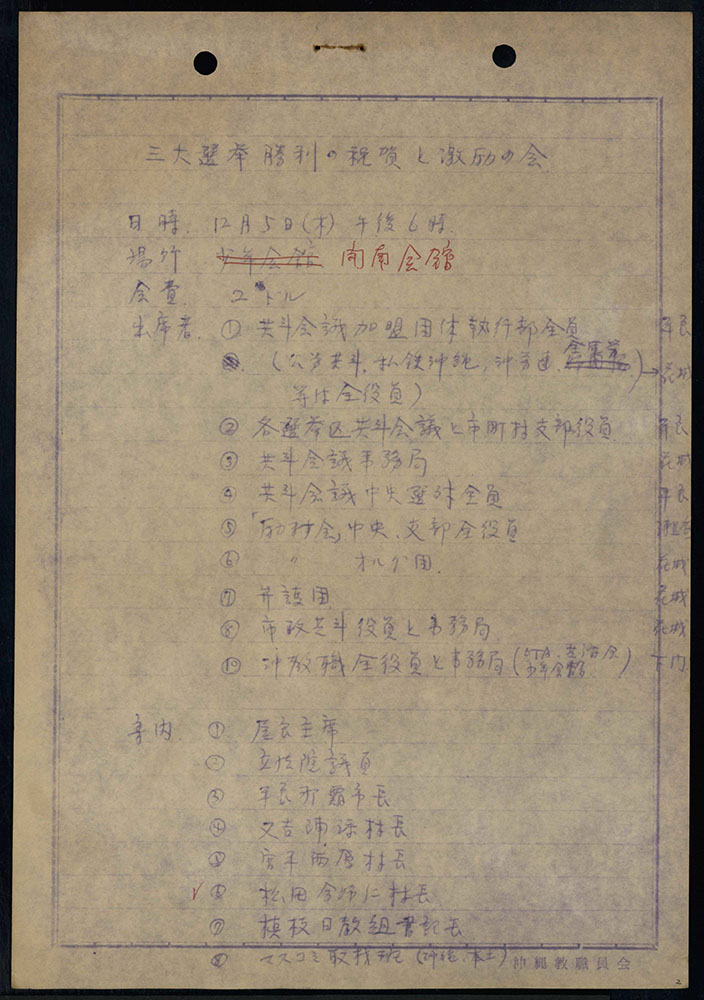 三大選挙勝利の祝賀と激励の会
日時. 12月5日(木) 午後6時.
場所 少年会館 開南会館
会費. 2ドル
出席者. ① 共斗会議加盟団体執行部全員
(公労共斗, 私鉄沖縄, 沖労連, )→ 花城
等は全役員)
② 各選挙区共斗会議と市町村支部役員 平良
③ 共斗会議事務局 花城
④ 共斗会議中央選対全員 平良
⑤ 中央、支部全役員
⑥ 〃 オルグ団. 花城
⑦ 弁護団 花城
⑧ 市政共斗役員と事務局 花城
⑩ 沖教職全役員と事務局( 共済会 少年会館)
案内 ① 屋良主席
② 立法院議員
③ 平良那覇市長
④ 又吉浦添村長
⑤ 宮平西原村長
✓ ⑥ 松田今帰仁村長
⑦ 槙枝日教組書記長
⑧ マスコミ取材班(沖縄、本土)
沖縄教職員会
2